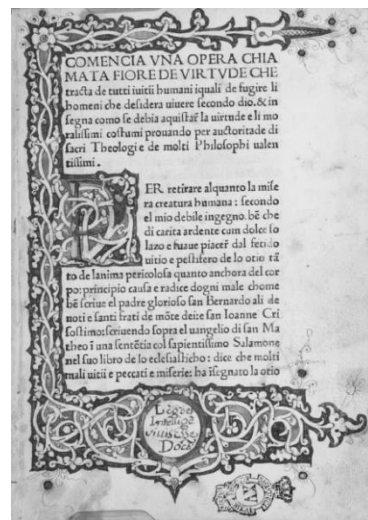 COMENCIA VNA OPERA CHIA
MATA FIORE DE VIRTVDE CHE
tracta de tutti iuitii humani iquali de fugire li
homeni che desidera uiuere secondo dio. & in
segna como se debia aquistar̃ la uirtude e li mo
ralissimi costumi prouando per auctoritade di
sacri Theologi e de molti Philosophi ualen
tissimi.
PER retirare alquanto la mise
ra creatura humana: secondo
el mio debile ingegno. bẽ che
di carita ardente cum dolce so
lazo e suaue piacer̃ dal fetido
uitio e pestifero de lo otio tã
to de lanima pericolosa quanto anchora del cor
po: principio causa e radice dogni male chome
bẽ scriue el padre glorioso san Bernardo ali de
uoti e santi frati de mõte deite san Ioanne Cri
sostimo: scriuendo sopra el uangelio di san Ma
theo ĩ una sentẽtia col sapientissimo Salamone
nel suo libro de lo eclesiasticho: dice che molti
mali uitii e peccati e miserie: ha ĩsegnato la otio